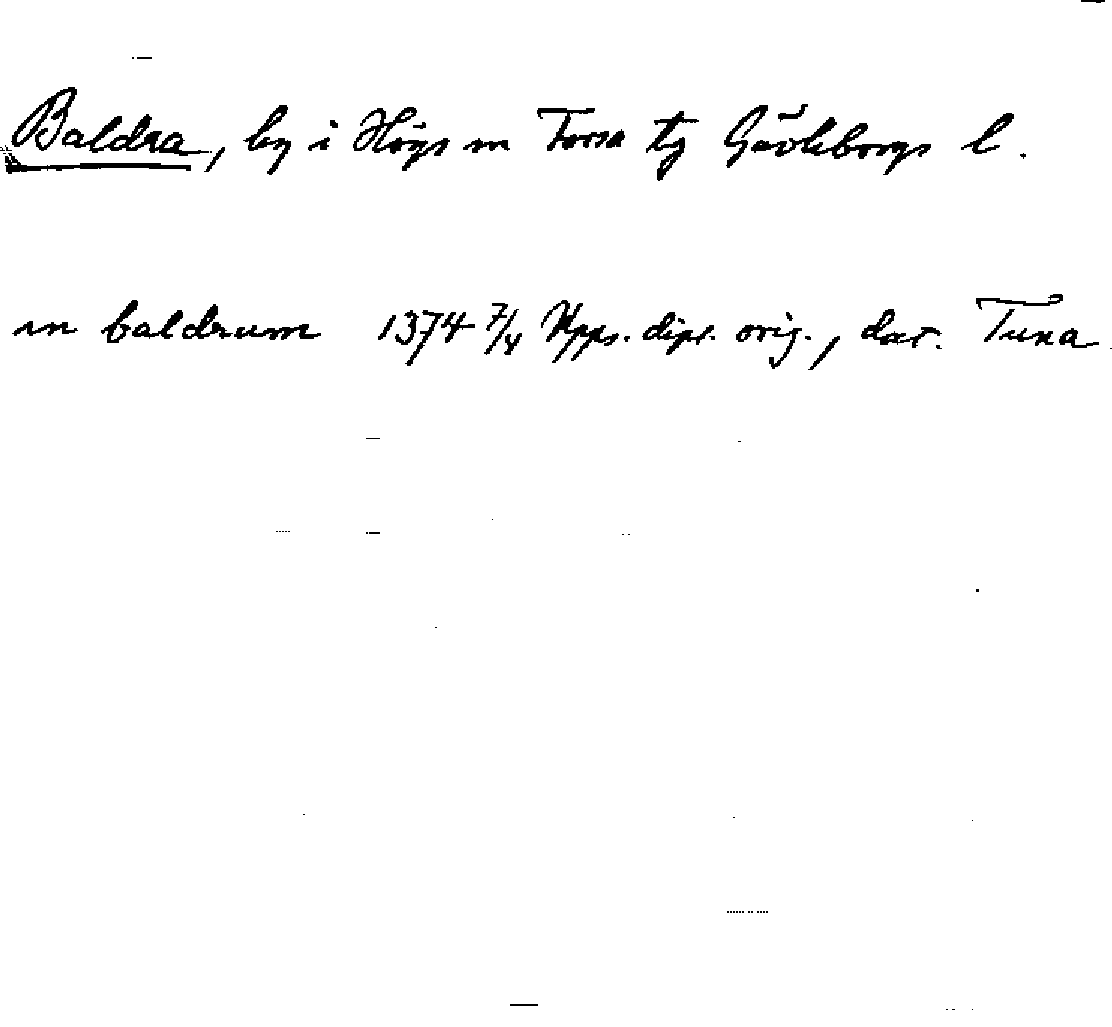 Baldra, by i Högs sn Forsa tg Gävleborgs l.
in baldrum 1374 7/4 Upps. dipl. orig., dat. Tuna